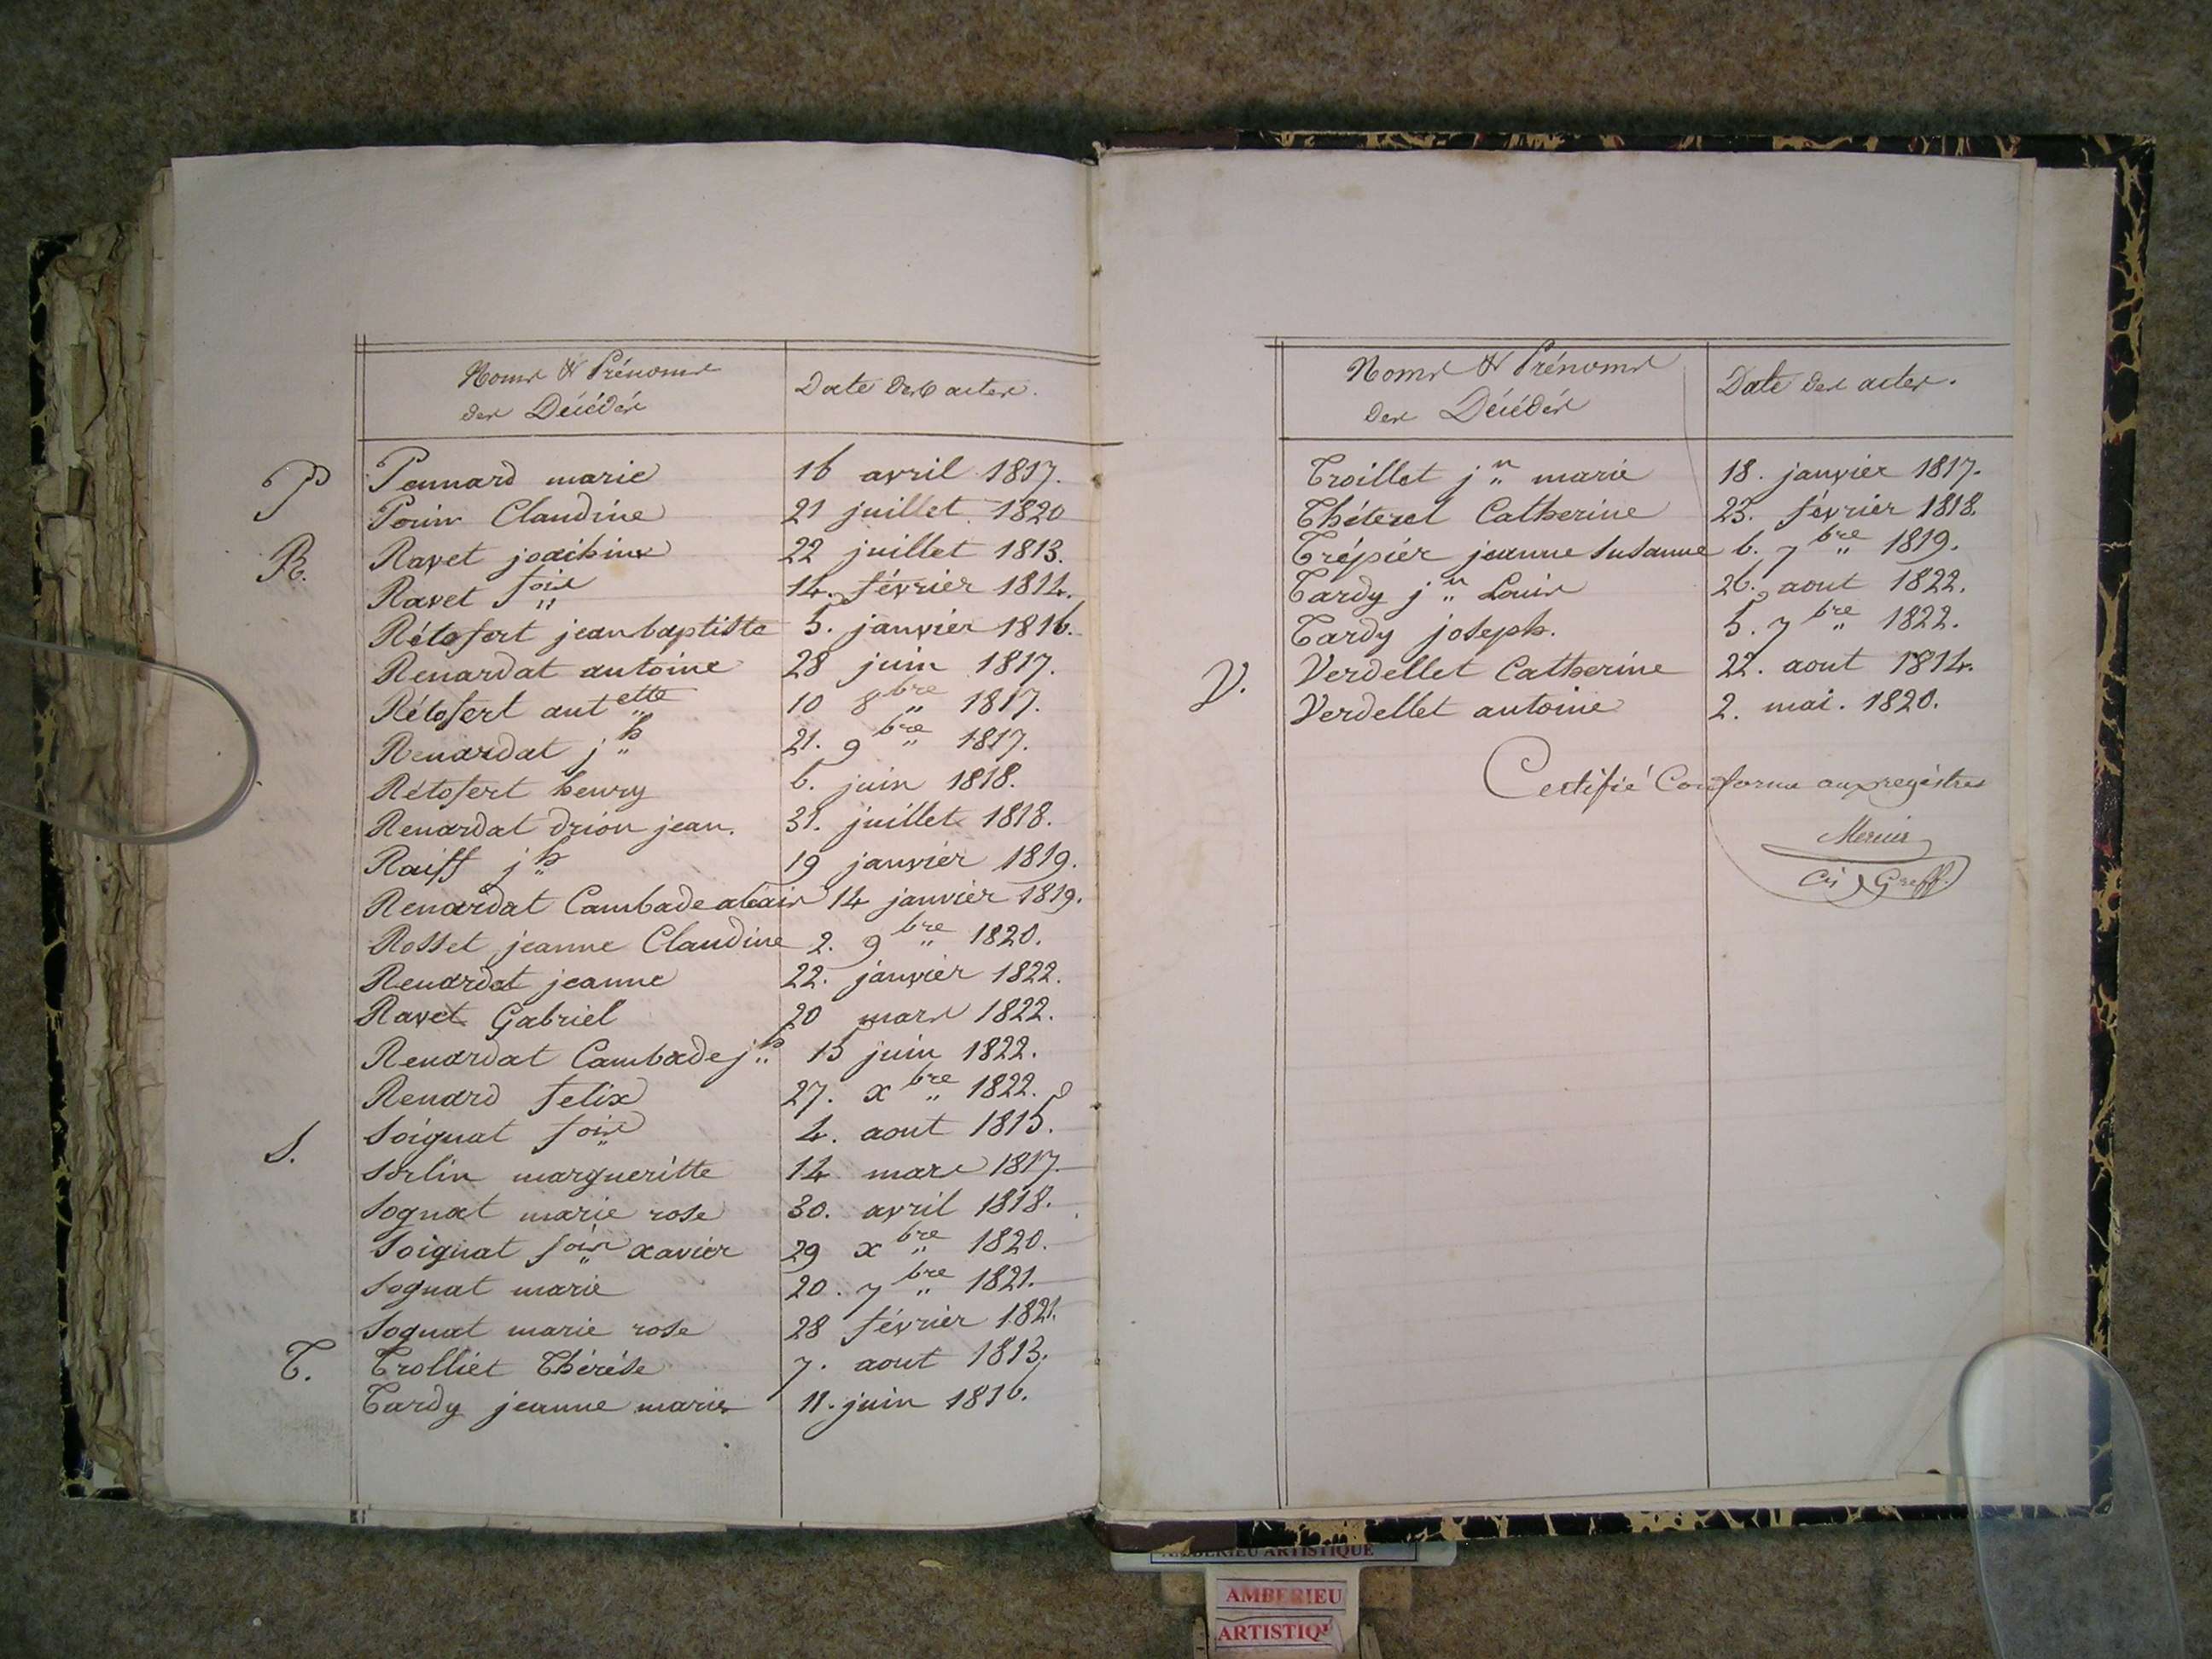 Noms & Prénoms
des Décédés
Date des actes.
P
Pennard marie
16 avril 1817.
Pouin Claudine
21 juillet 1820
R.
Ravet joachim
22 juillet 1813.
Ravet fois
14. février 1814.
Rétofert jean baptiste
5. janvier 1816.
Renardat antoine
28 juin 1817.
Rétofert antette
10 8bre 1817.
Renardat jh
21. 9bre 1817.
Rétofert henry
6. juin 1818.
Renardat drion jean.
31. juillet 1818.
Raiff jh
19 janvier 1819.
Renardat Cambade
14 janvier 1819.
Rosset jeanne Claudine
2. 9bre 1820.
Renardat jeanne
22. janvier 1822.
Ravet Gabriel
20 mars 1822.
Renardat Cambade jh
15 juin 1822.
Renard felix
27. xbre 1822.
S.
Soignat foise
4. aout 1815.
Sorlin margueritte
14 mars 1817.
Sognat marie rose
30. avril 1818.
Soignat fois xavier
29 xbre 1820.
Sognat marie
20. 7bre 1821.
Sognat marie rose
28 février 1821.
T.
Trolliet Thérése
7. aout 1813.
Tardy jeanne marie
11. juin 1816.
Noms & Prénoms
des Décédés
Date des actes.
Troillet jn marie
18. janvier 1817.
Théterel Catherine
23. février 1818.
Trépier jeanne Susanne
6. 7bre 1819.
Tardy jn Louis
26. aout 1822.
Tardy joseph.
5. 7bre 1822.
V.
Verdellet Catherine
22. aout 1814.
Verdellet antoine
2. mai. 1820.
Certifié Conforme aux regéstres
Mercier
Cis Greff.
AMBERIEU ARTISTIQUE
AMBERIEU
ARTISTIQU